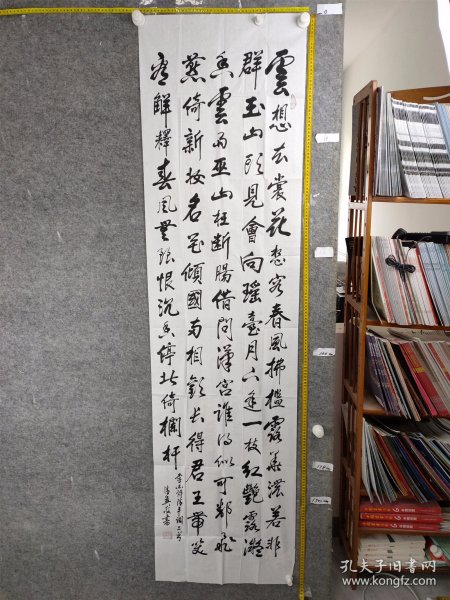 雲想衣裳花想容春風拂檻露華濃若非
群玉山頭見會向瑤臺月下逢一枝紅艷露凝
香雲雨巫山枉斷腸借問漢宮誰得似可憐飛
燕倚新妝名花傾國兩相歡長得君王帶笑
看解釋春風無限恨沉香亭北倚欄杆
孔夫子旧书网
www.kongfz.com